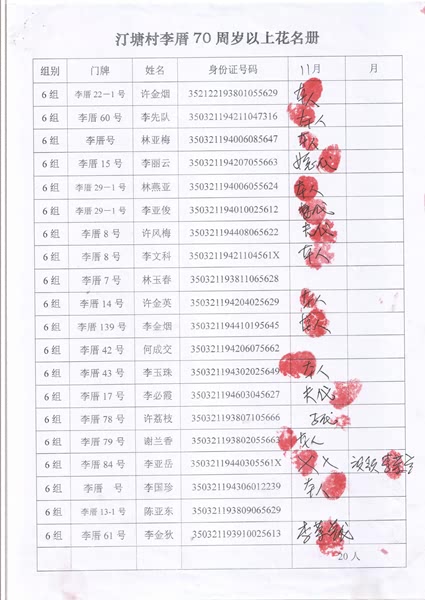 汀塘村李厝 70 周岁以上花名册
组别 门牌 姓名 身份证号码 11月 月
6 组 李厝 22－1 号 许金烟 352122193801055629 本人
6 组 李厝 60 号 李先队 350321194211047316 本人
6 组 李厝号 林亚梅 350321194006085647 本人
6 组 李厝 15 号 李丽云 350321194207055663
6 组 李厝 29－1 号 林燕亚 350321194006055624 本人
6 组 李厝 29－1 号 李亚俊 350321194010025612
6 组 李厝 8 号 许风梅 350321194408065622
6 组 李厝 8 号 李文科 35032119421104561X 本人
6 组 李厝 7 号 林玉春 350321193811065628
6 组 李厝 14 号 许金英 350321194204025629 本人
6 组 李厝 139 号 李金烟 350321194410195645 本人
6 组 李厝 42 号 何成交 350321194206075662
6 组 李厝 43 号 李玉珠 350321194302025649 本人
6 组 李厝 17 号 李必霞 350321194603045627
6 组 李厝 78 号 许荔枝 350321193807105666
6 组 李厝 79 号 谢兰香 350321193802055663 本人
6 组 李厝 84 号 李亚岳 35032119440305561X X X
6 组 李厝 号 李国珍 350321194306012239 本人
6 组 李厝 13-1 号 陈亚东 350321193809065629
6 组 李厝 61 号 李金狄 350321193910025613
20 人